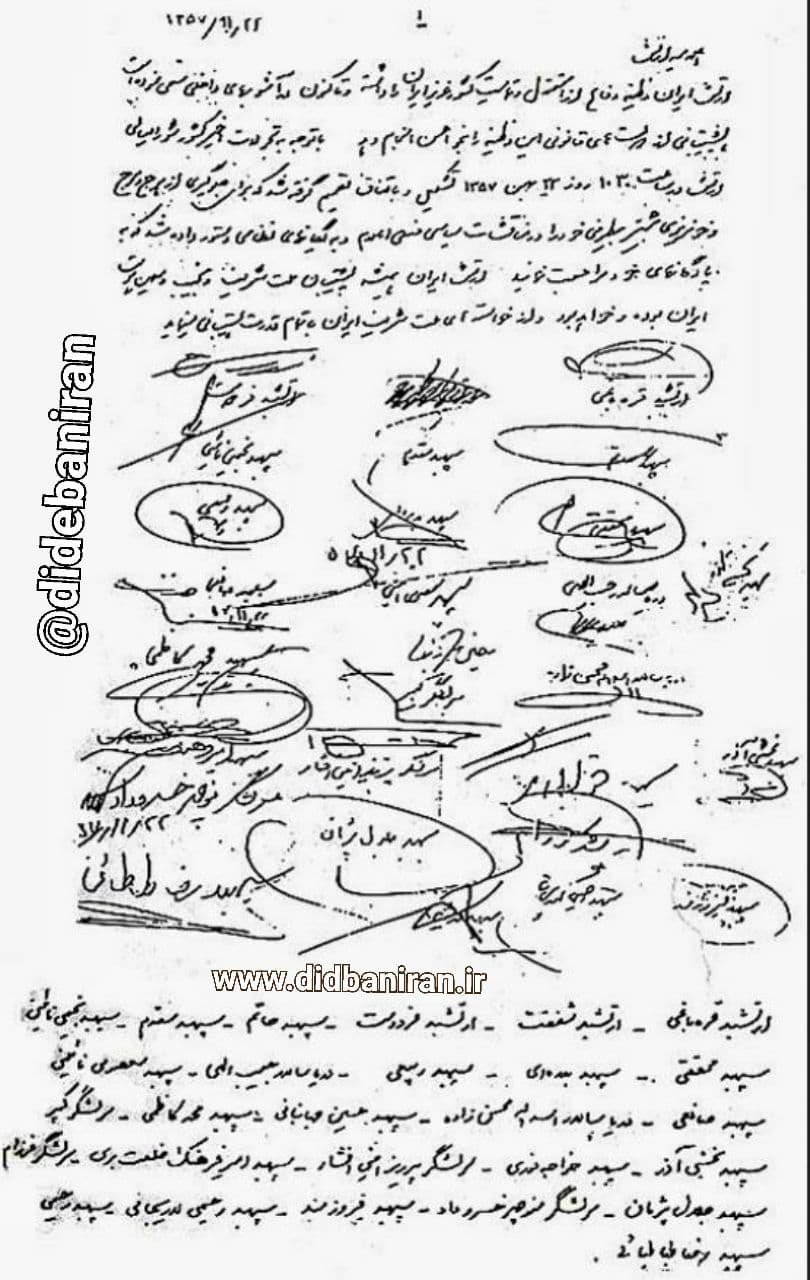 ۱
۱۳۵۷/۱۱/۲۲
ارتش ایران وظیفه دفاع از استقلال و تمامیت کشور عزیز ایران را داشته و تاکنون در آشوبهای داخلی سعی نموده است
پشتیبانی از دولتهای قانونی این وظیفه را بنحو احسن انجام دهد با توجه به تحولات اخیر کشور شورایعالی
ارتش در ساعت ۱۰:۳۰ روز ۲۲ بهمن ۱۳۵۷ تشکیل و باتفاق تصمیم گرفته شد که برای جلوگیری از هرج و مرج
و خونریزی بیشتر بیطرفی خود را در مناقشات سیاسی فعلی اعلام و به یگانهای نظامی دستور داده شد که به
پادگانهای خود مراجعت نمایند ارتش ایران همیشه پشتیبان ملت شریف و نجیب و میهن پرست
ایران بوده و خواهد بود و از خواسته های ملت شریف ایران با تمام قدرت پشتیبانی مینماید
ارتشبد قره باغی
ارتشبد فردوست
سپهبد حاتم
سپهبد مقدم
سپهبد نجیمی نائینی
سپهبد محققی
سپهبد ربیعی
۵۷/۱۱/۲۲
دریاسالار حبیب اللهی
سپهبد معصومی نائینی
سپهبد صانعی
۵۷/۱۱/۲۲
سپهبد محمد کاظمی
سرلشگر کبیر
سپهبد بخشی آذر
سرلشگر پرویز امینی افشار
سرلشگر منوچهر خسروداد
۵۷/۱۱/۲۲
سپهبد جلال پژمان
سپهبد فیروزمند
سپهبد رضا طباطبائی
@didebaniran
www.didbaniran.ir
ارتشبد قره باغی - ارتشبد شفقت - ارتشبد فردوست - سپهبد حاتم - سپهبد مقدم - سپهبد نجیمی نائینی
سپهبد محققی - سپهبد بدره‌ای - سپهبد ربیعی - دریاسالار حبیب الهی - سپهبد معصومی نائینی
سپهبد صانعی - دریاسالار اسداله محسن زاده - سپهبد حسین جهانبانی - سپهبد محمد کاظمی - سرلشگر کبیر
سپهبد بخشی آذر - سپهبد خواجه نوری - سرلشگر پرویز امینی افشار - سپهبد امیر فرهنگ خلعت بری - سرلشگر فرزام
سپهبد جلال پژمان - سرلشگر منوچهر خسروداد - سپهبد فیروزمند - سپهبد رحیمی لاریجانی - سپهبد رحیمی
سپهبد رضا طباطبائی .